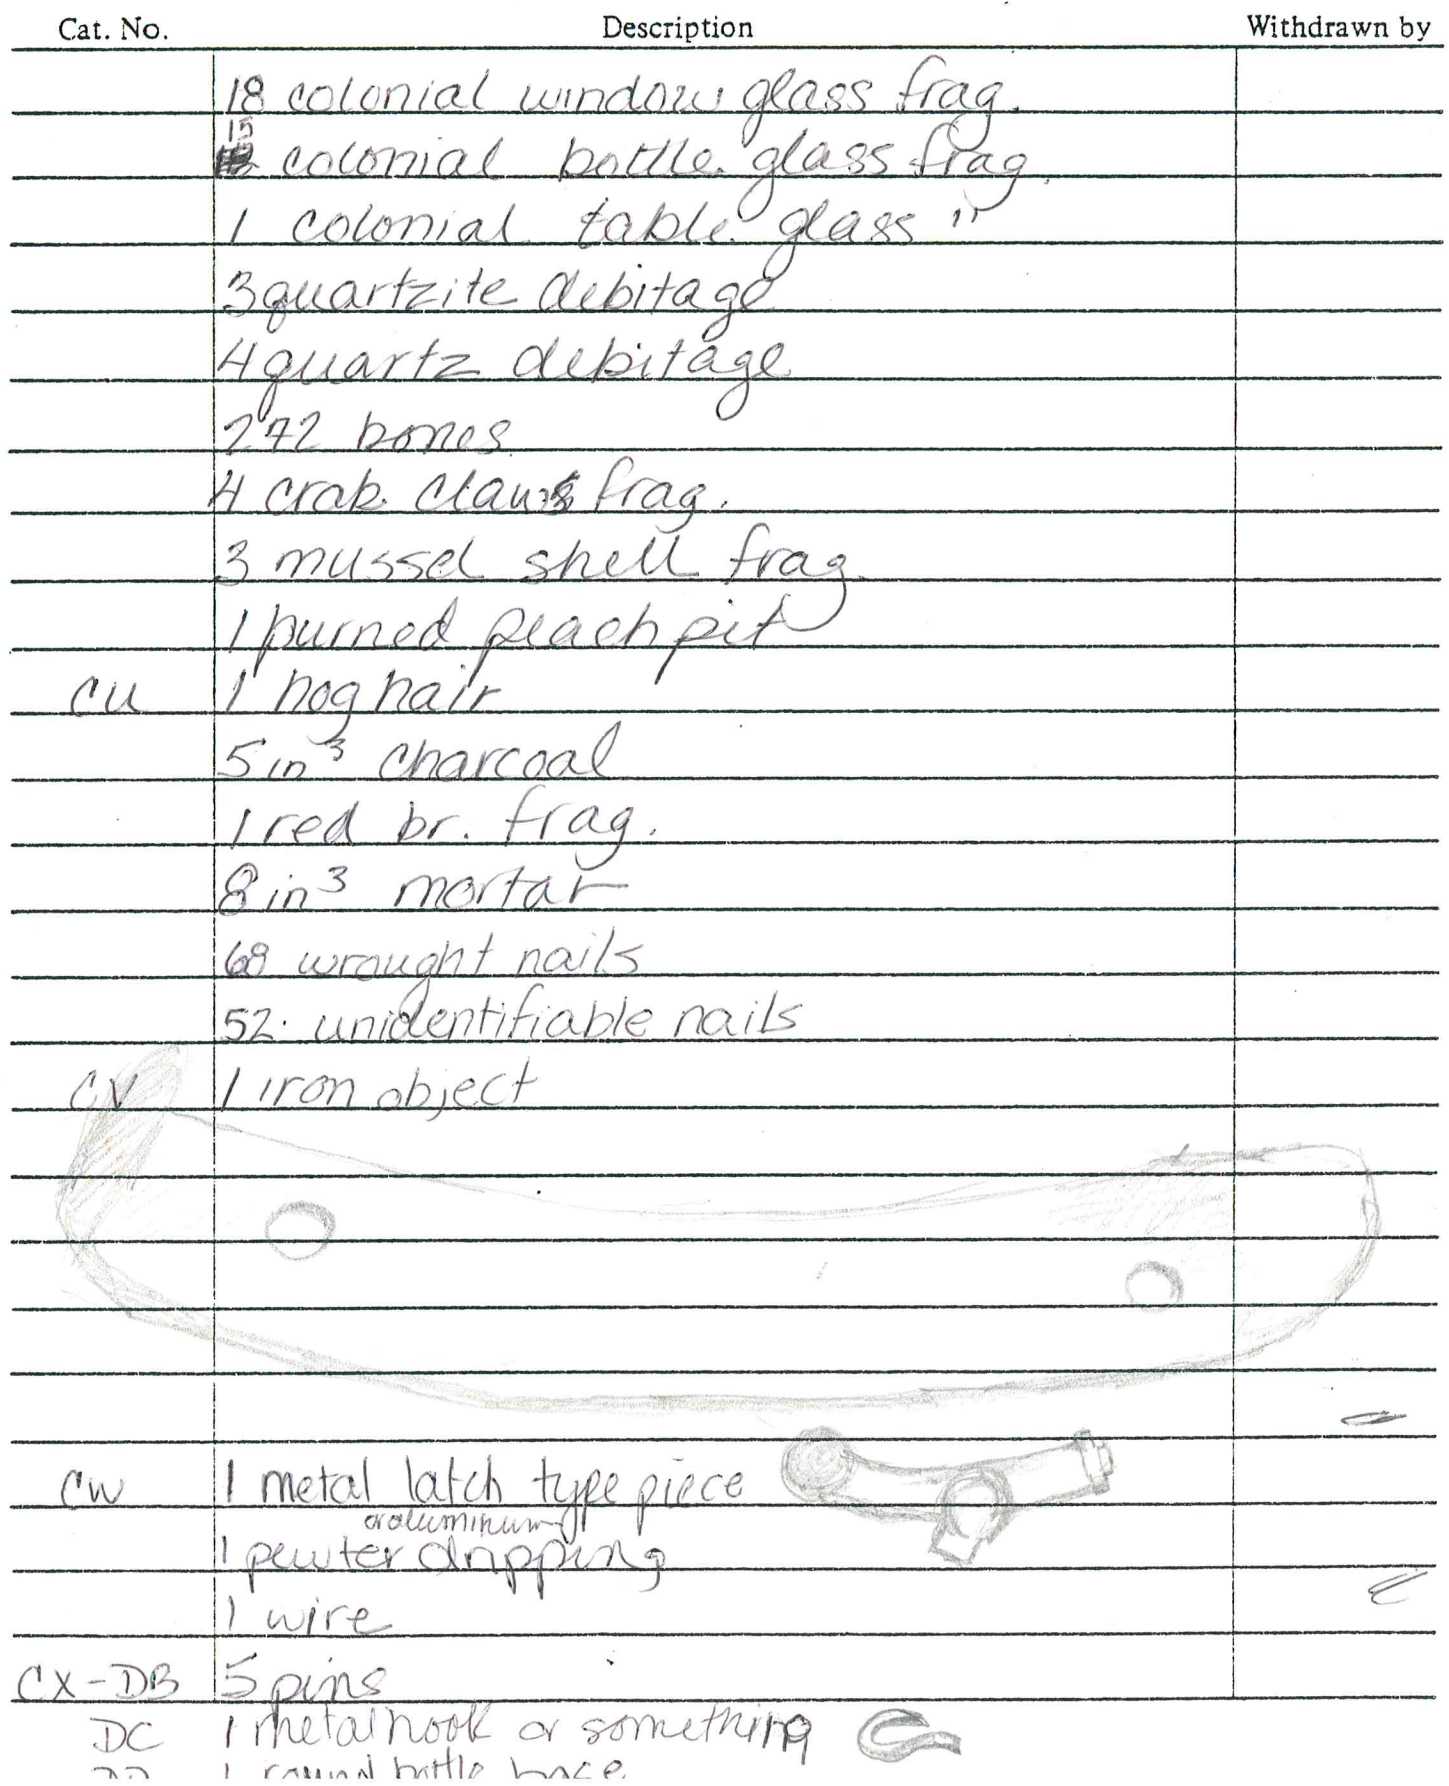 Cat. No. Description Withdrawn by
18 colonial window glass frag.
15 colonial bottle glass frag.
1 colonial table glass "
3 quartzite debitage
4 quartz debitage
272 bones
4 crab claws frag.
3 mussel shell frag.
1 burned peach pit
CU 1 hog hair
5 in³ charcoal
1 red br. frag.
8 in³ mortar
68 wrought nails
52 unidentifiable nails
CV 1 iron object
CW 1 metal latch type piece
or aluminum
1 pewter dripping
1 wire
CX-DB 5 pins
DC 1 metal hook or something
1 round bottle base